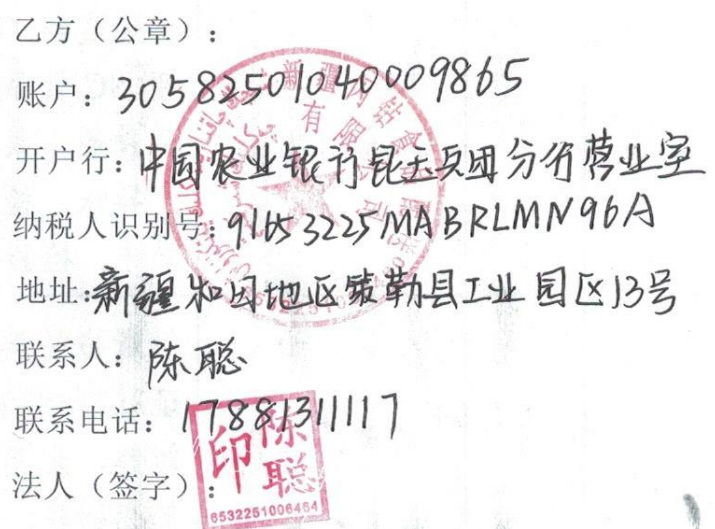 乙方（公章）：
账户：30582501040009865
开户行：中国农业银行昆玉兵团分行营业室
纳税人识别号：91653225MABRLMN96A
地址：新疆和田地区策勒县工业园区13号
联系人：陈聪
联系电话：17881311117
法人（签字）：
陈聪印
6532251006464
新疆
食
有限公司